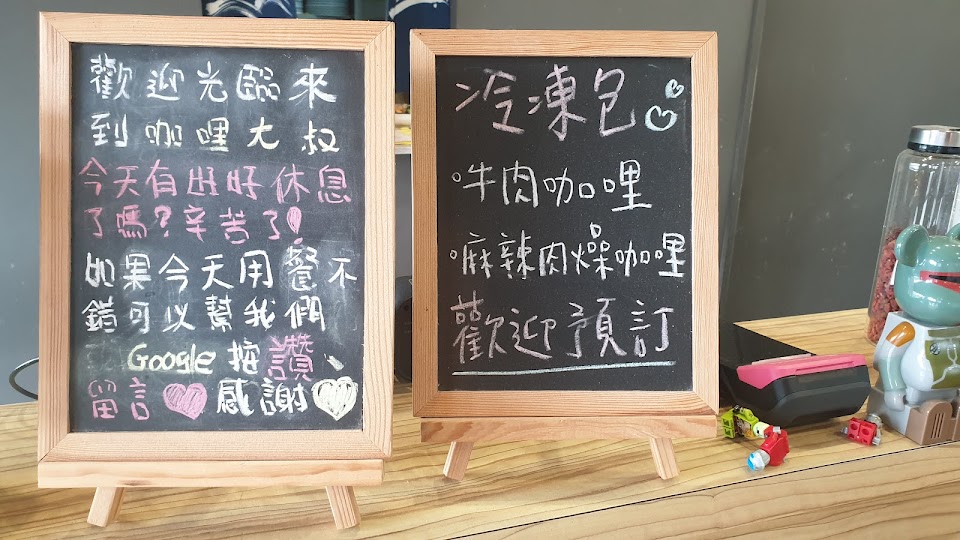 歡迎光臨來
到咖哩大叔
今天有出好休息
了嗎?辛苦了!
如果今天用餐不
錯可以幫我們
Google 按讚、
留言♥感謝♥
冷凍包♡♡
。牛肉咖哩
。麻辣肉燥咖哩
歡迎預訂